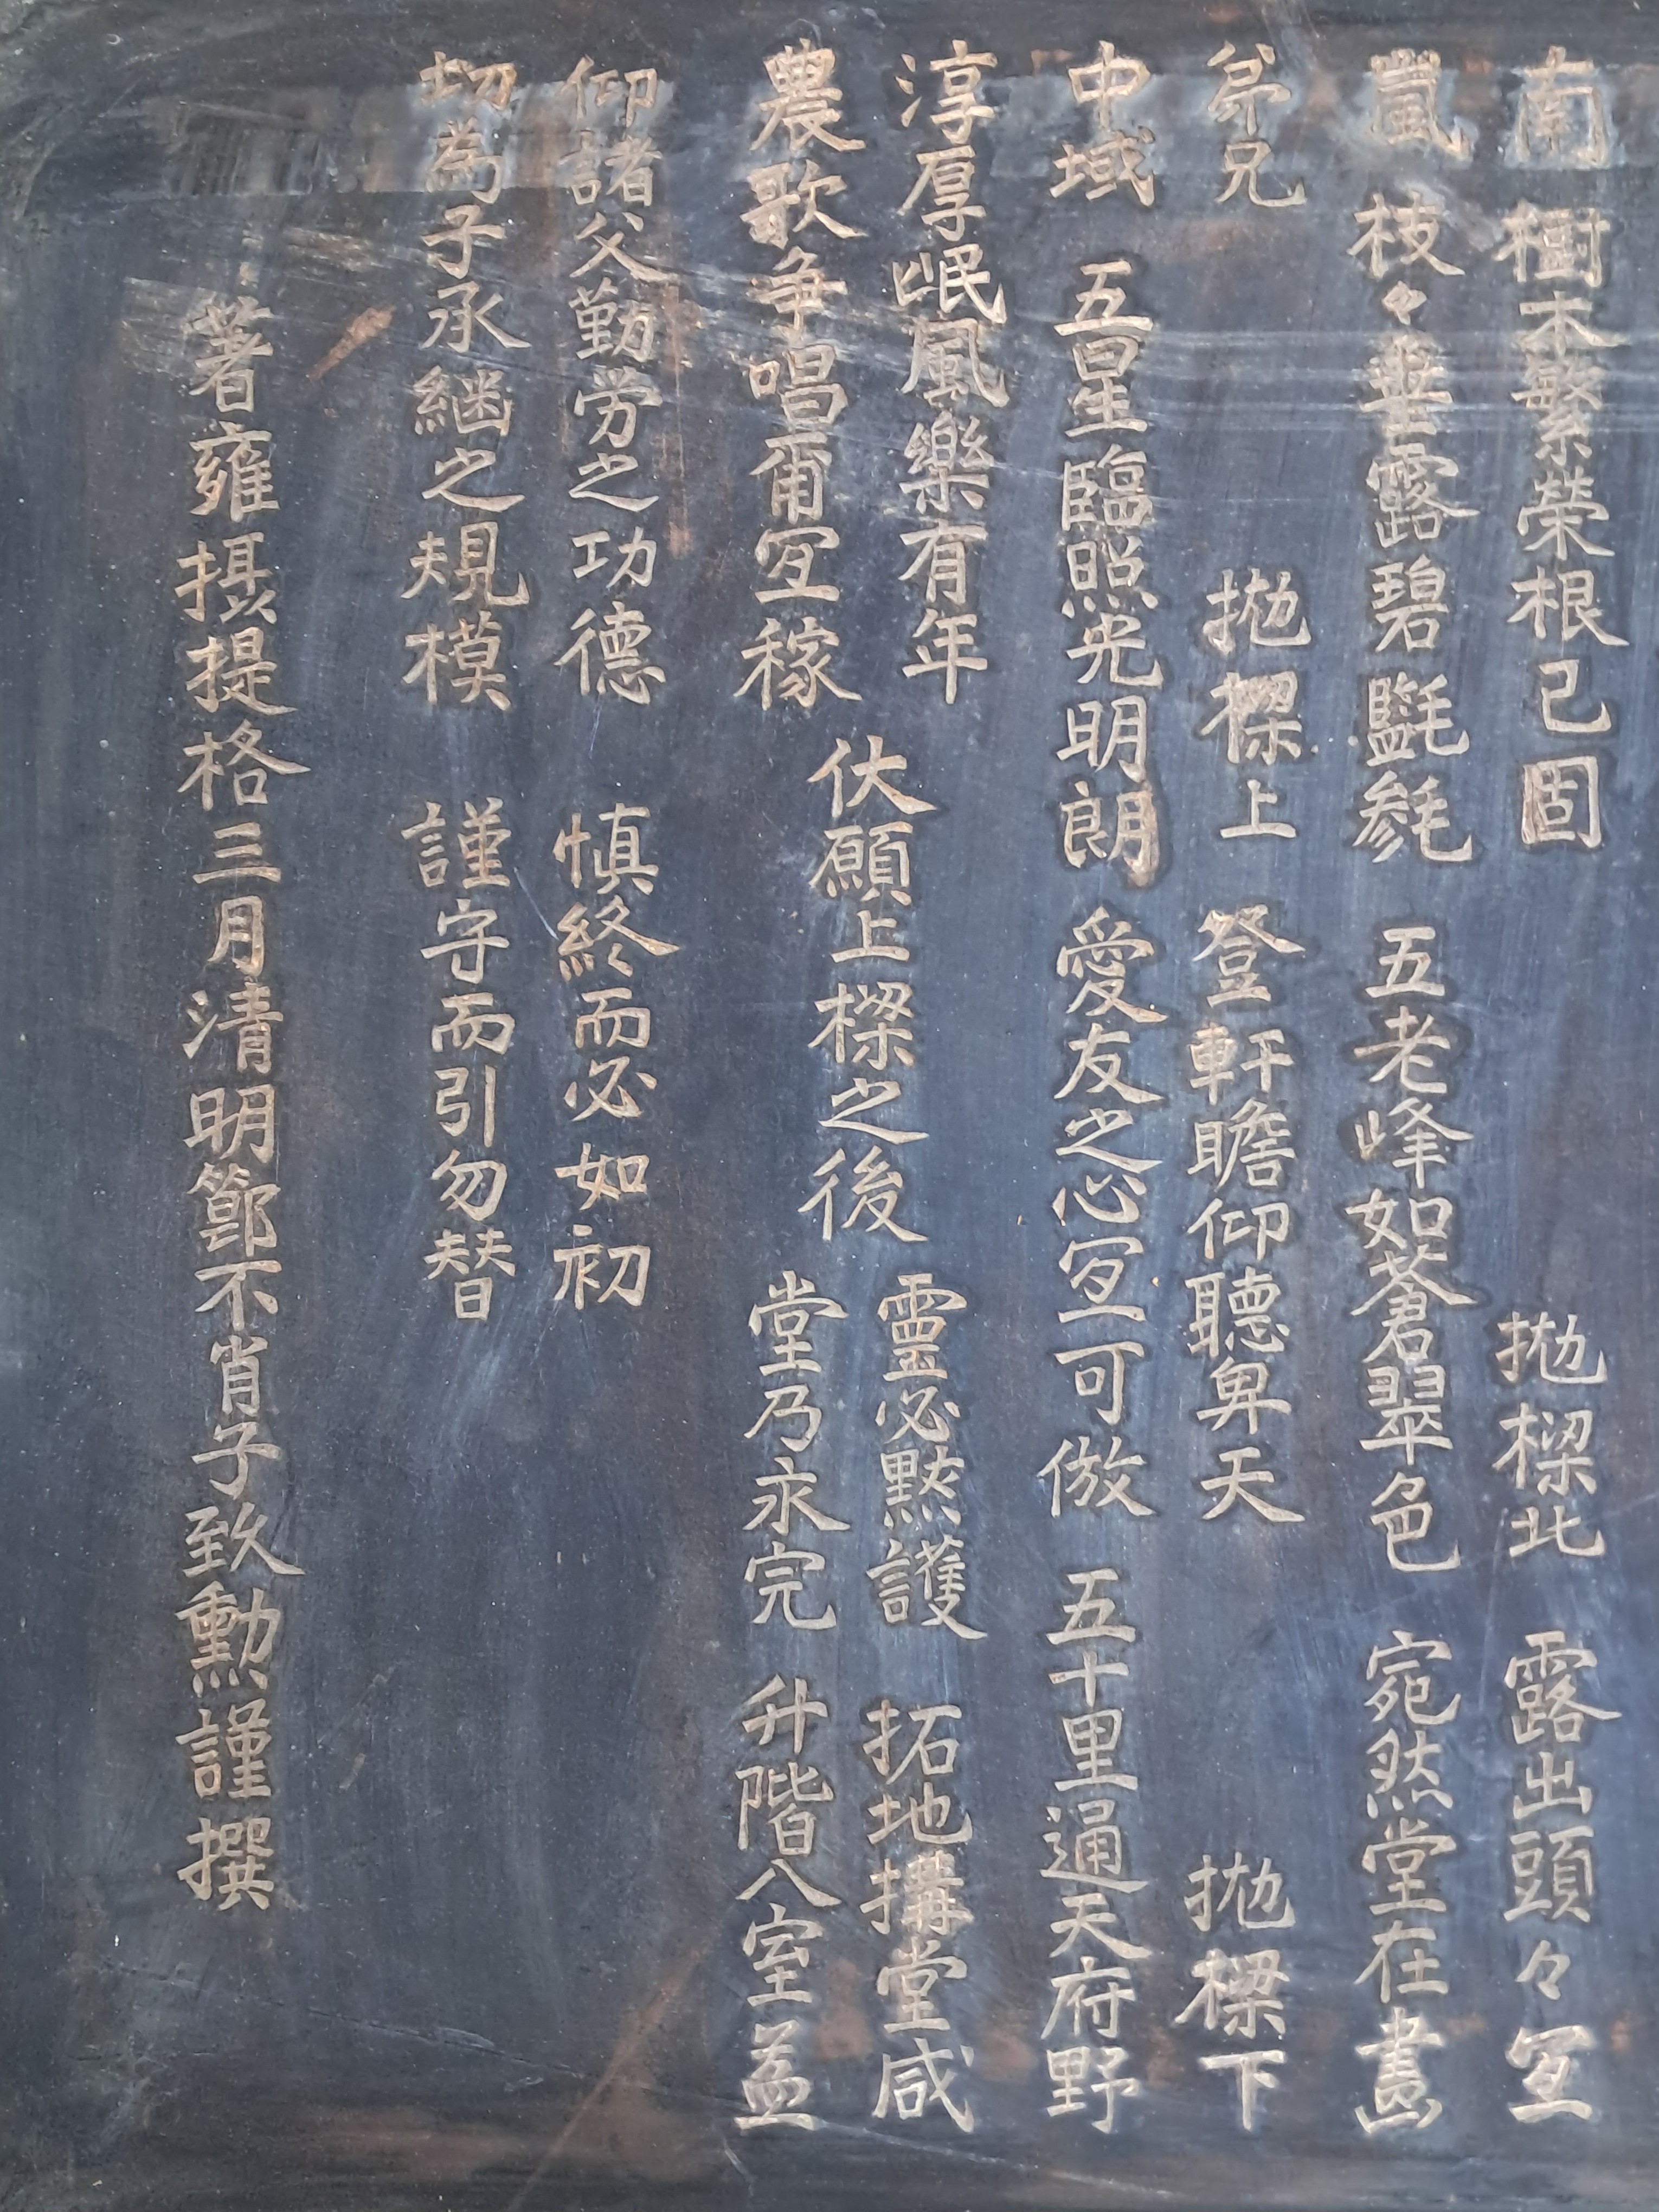 南樹木繁榮根已固 拋樑北 露出頭々冝
嵐枝々垂露碧𣯶毿 五老峰如蒼翠色 宛然堂在畵
弟兄 拋樑上 登軒瞻仰聽卑天 拋樑下
中域 五星臨照光明朗 愛友之心冝可倣 五十里通天府野
淳厚岷風樂有年
農歌争唱甭冝稼
伏願上樑之後
靈必黙護 拓地搆堂咸
堂乃永完 升階入室益
仰諸父勤労之功德 慎終而必如初
切為子承継之規模 謹守而引勿替
著雍攝提格三月清明節不肖子致勳謹撰